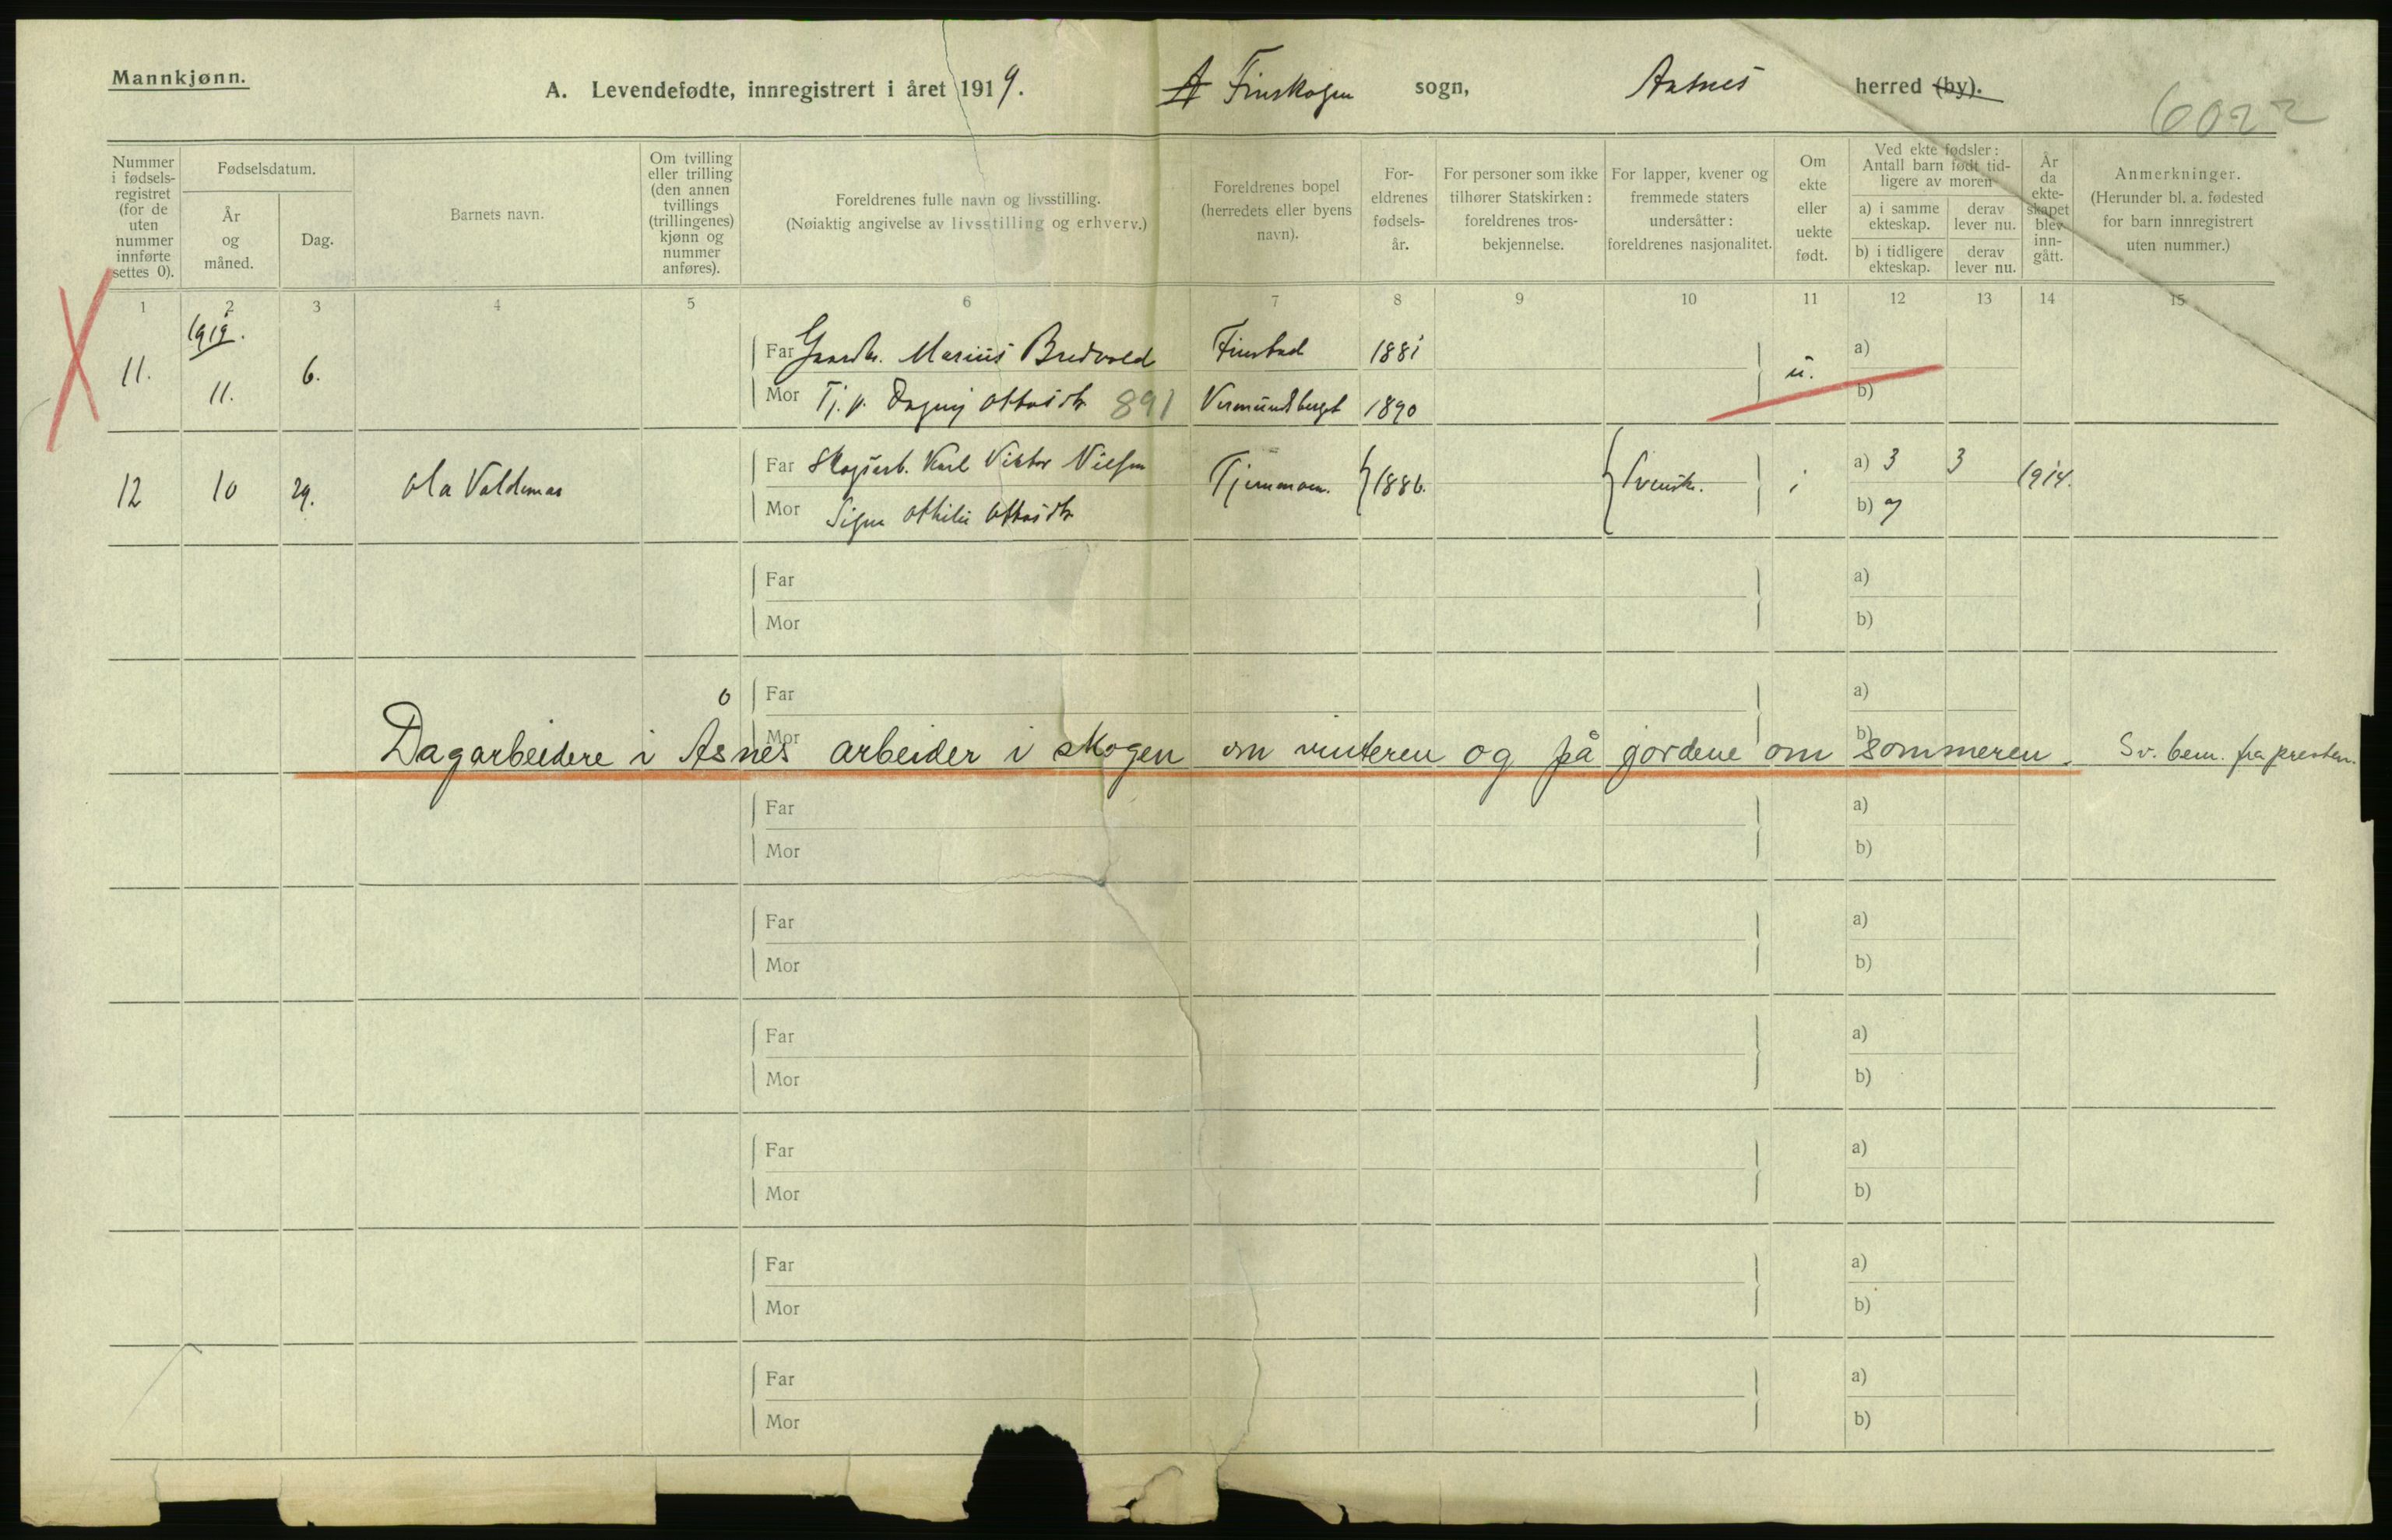 Mannkjønn.
A. Levendefødte, innregistrert i året 1919. A Finskogen sogn, Aasnes herred (by).
6022
Nummer i fødsels-registret (for de uten nummer innførte settes 0).
Fødselsdatum.
År og måned.
Dag.
Barnets navn.
Om tvilling eller trilling (den annen tvillings (trillingenes) kjønn og nummer anføres).
Foreldrenes fulle navn og livsstilling.
(Nøiaktig angivelse av livsstilling og erhverv.)
Foreldrenes bopel (herredets eller byens navn).
For-eldrenes fødsels-år.
For personer som ikke tilhører Statskirken: foreldrenes tros-bekjennelse.
For lapper, kvener og fremmede staters undersåtter: foreldrenes nasjonalitet.
Om ekte eller uekte født.
Ved ekte fødsler: Antall barn født tid-ligere av moren
a) i samme ekteskap.
derav lever nu.
b) i tidligere ekteskap.
derav lever nu.
År da ekte-skapet blev inn-gått.
Anmerkninger.
(Herunder bl. a. fødested for barn innregistrert uten nummer.)
1 2 3 4 5 6 7 8 9 10 11 12 13 14 15
1919.
11. 11. 6. Far Gaardbr. Marius Bredvold Finstad 1881 u. a)
Mor Tj. p. Dagny Ottosdtr 891 Vermundsberget 1890 b)
12 10 29. Ola Valdemar Far Skogsarb. Karl Viktor Nilsen 1886. Svensk. i a) 3 3 1914.
Mor Signe Othilie Ottosdtr b) 0
Far a)
Mor b)
Far a)
Mor b)
Dagarbeidere i Åsnes arbeider i skogen om vinteren og på jordene om sommeren. Sv. bem. fra presten.
Far a)
Mor b)
Far a)
Mor b)
Far a)
Mor b)
Far a)
Mor b)
Far a)
Mor b)
Far a)
Mor b)